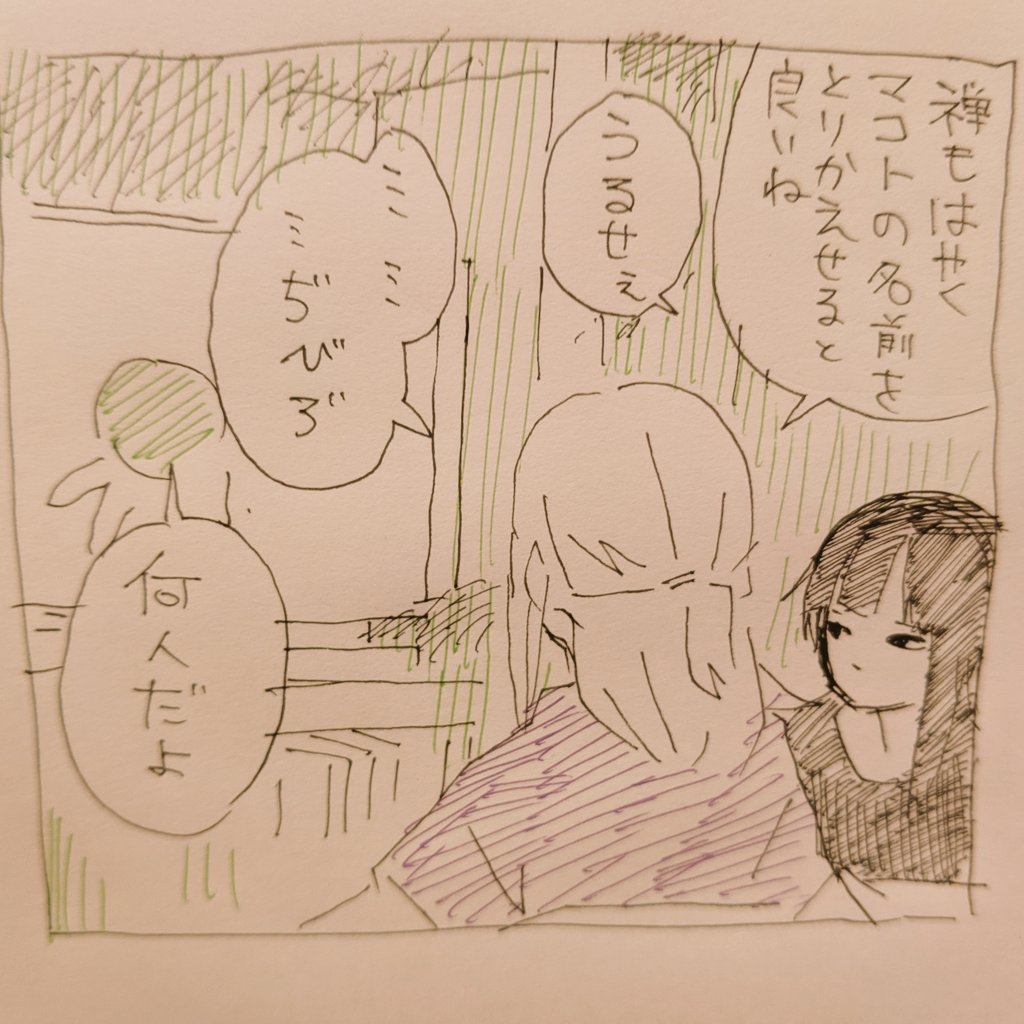 禅もはやく
マコトの名前を
とりかえせると
良いね
うるせぇ
ミミ
ミぢびろ゛
何人だよ